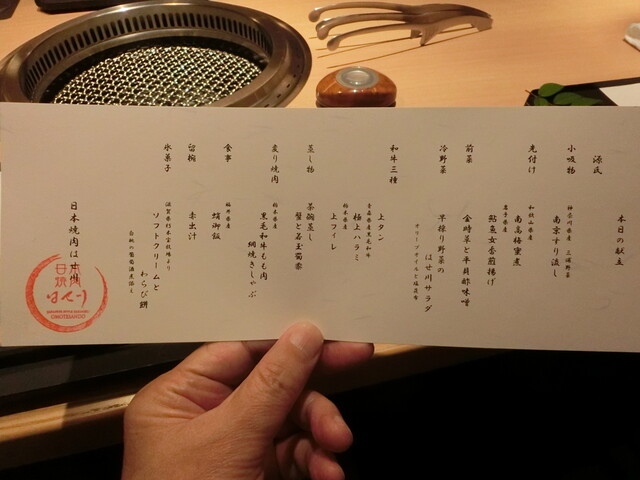 本日の献立
源氏
小吸物
神奈川県産 三浦野菜
南京すり流し
先付け
和歌山県産
南高梅蜜煮
岩手県産
鮎魚女香煎揚げ
前菜
金時草と平貝酢味噌
冷野菜
早採り野菜の
はせ川サラダ
オリーブオイルと塩昆布
和牛三種
上タン
青森県産黒毛和牛
極上ハラミ
栃木県産
上フィレ
蒸し物
茶碗蒸し
蟹と若玉蜀黍
炙り焼肉
栃木県産
黒毛和牛もも肉
網焼きしゃぶ
食事
福井県産
蜆御飯
留椀
赤出汁
氷菓子
滋賀県杉本家牧場より
ソフトクリームと
わらび餅
日本焼肉はせ川
日本焼肉
はせ川
OMOTESANDO